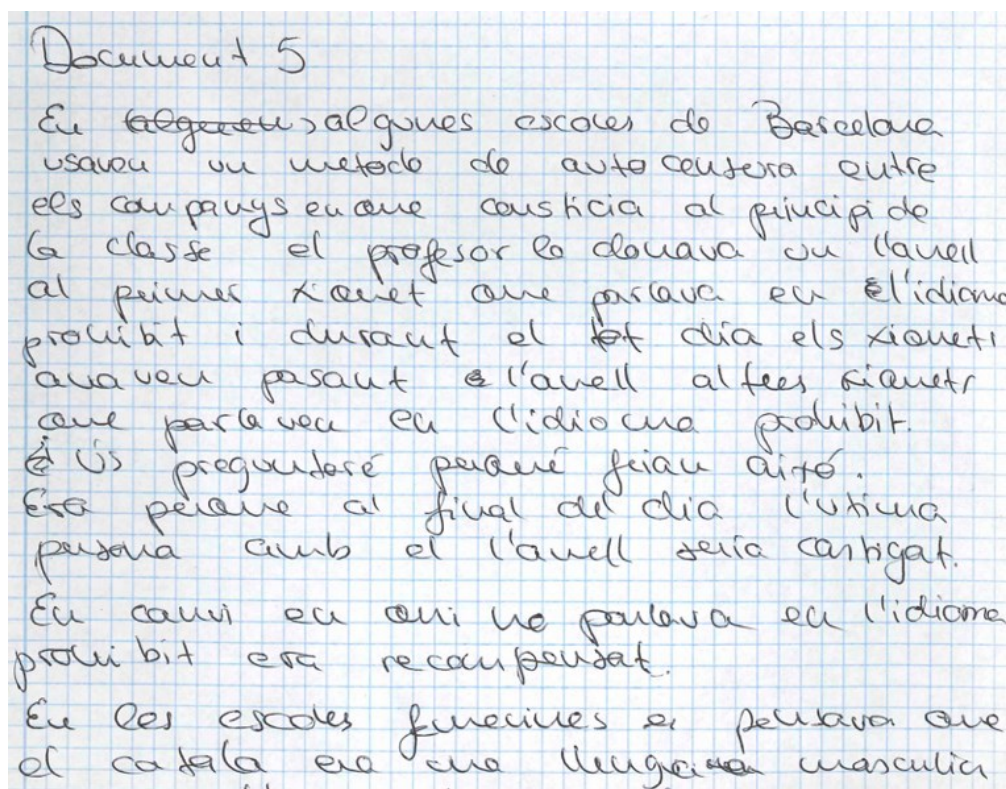 Document 5
En algunes escoles de Barcelona
usaven un metode de auto censura entre
els companys en que consticia al principi de
la classe el profesor lo donava un l'anell
al primer xiquet que parlava en l'idioma
prohibit i durant el dia els xiquets
anaven pasant l'anell altres xiquets
que parlaven en l'idioma prohibit.
Us preguntaré perquè feian aixó.
Era perque al final del dia l'utima
persona amb el l'anell seria castigat.
En canvi en qui no parlava en l'idioma
prohibit era recompensat.
En les escoles femenines es pensava que
el catala era una llengua masculin